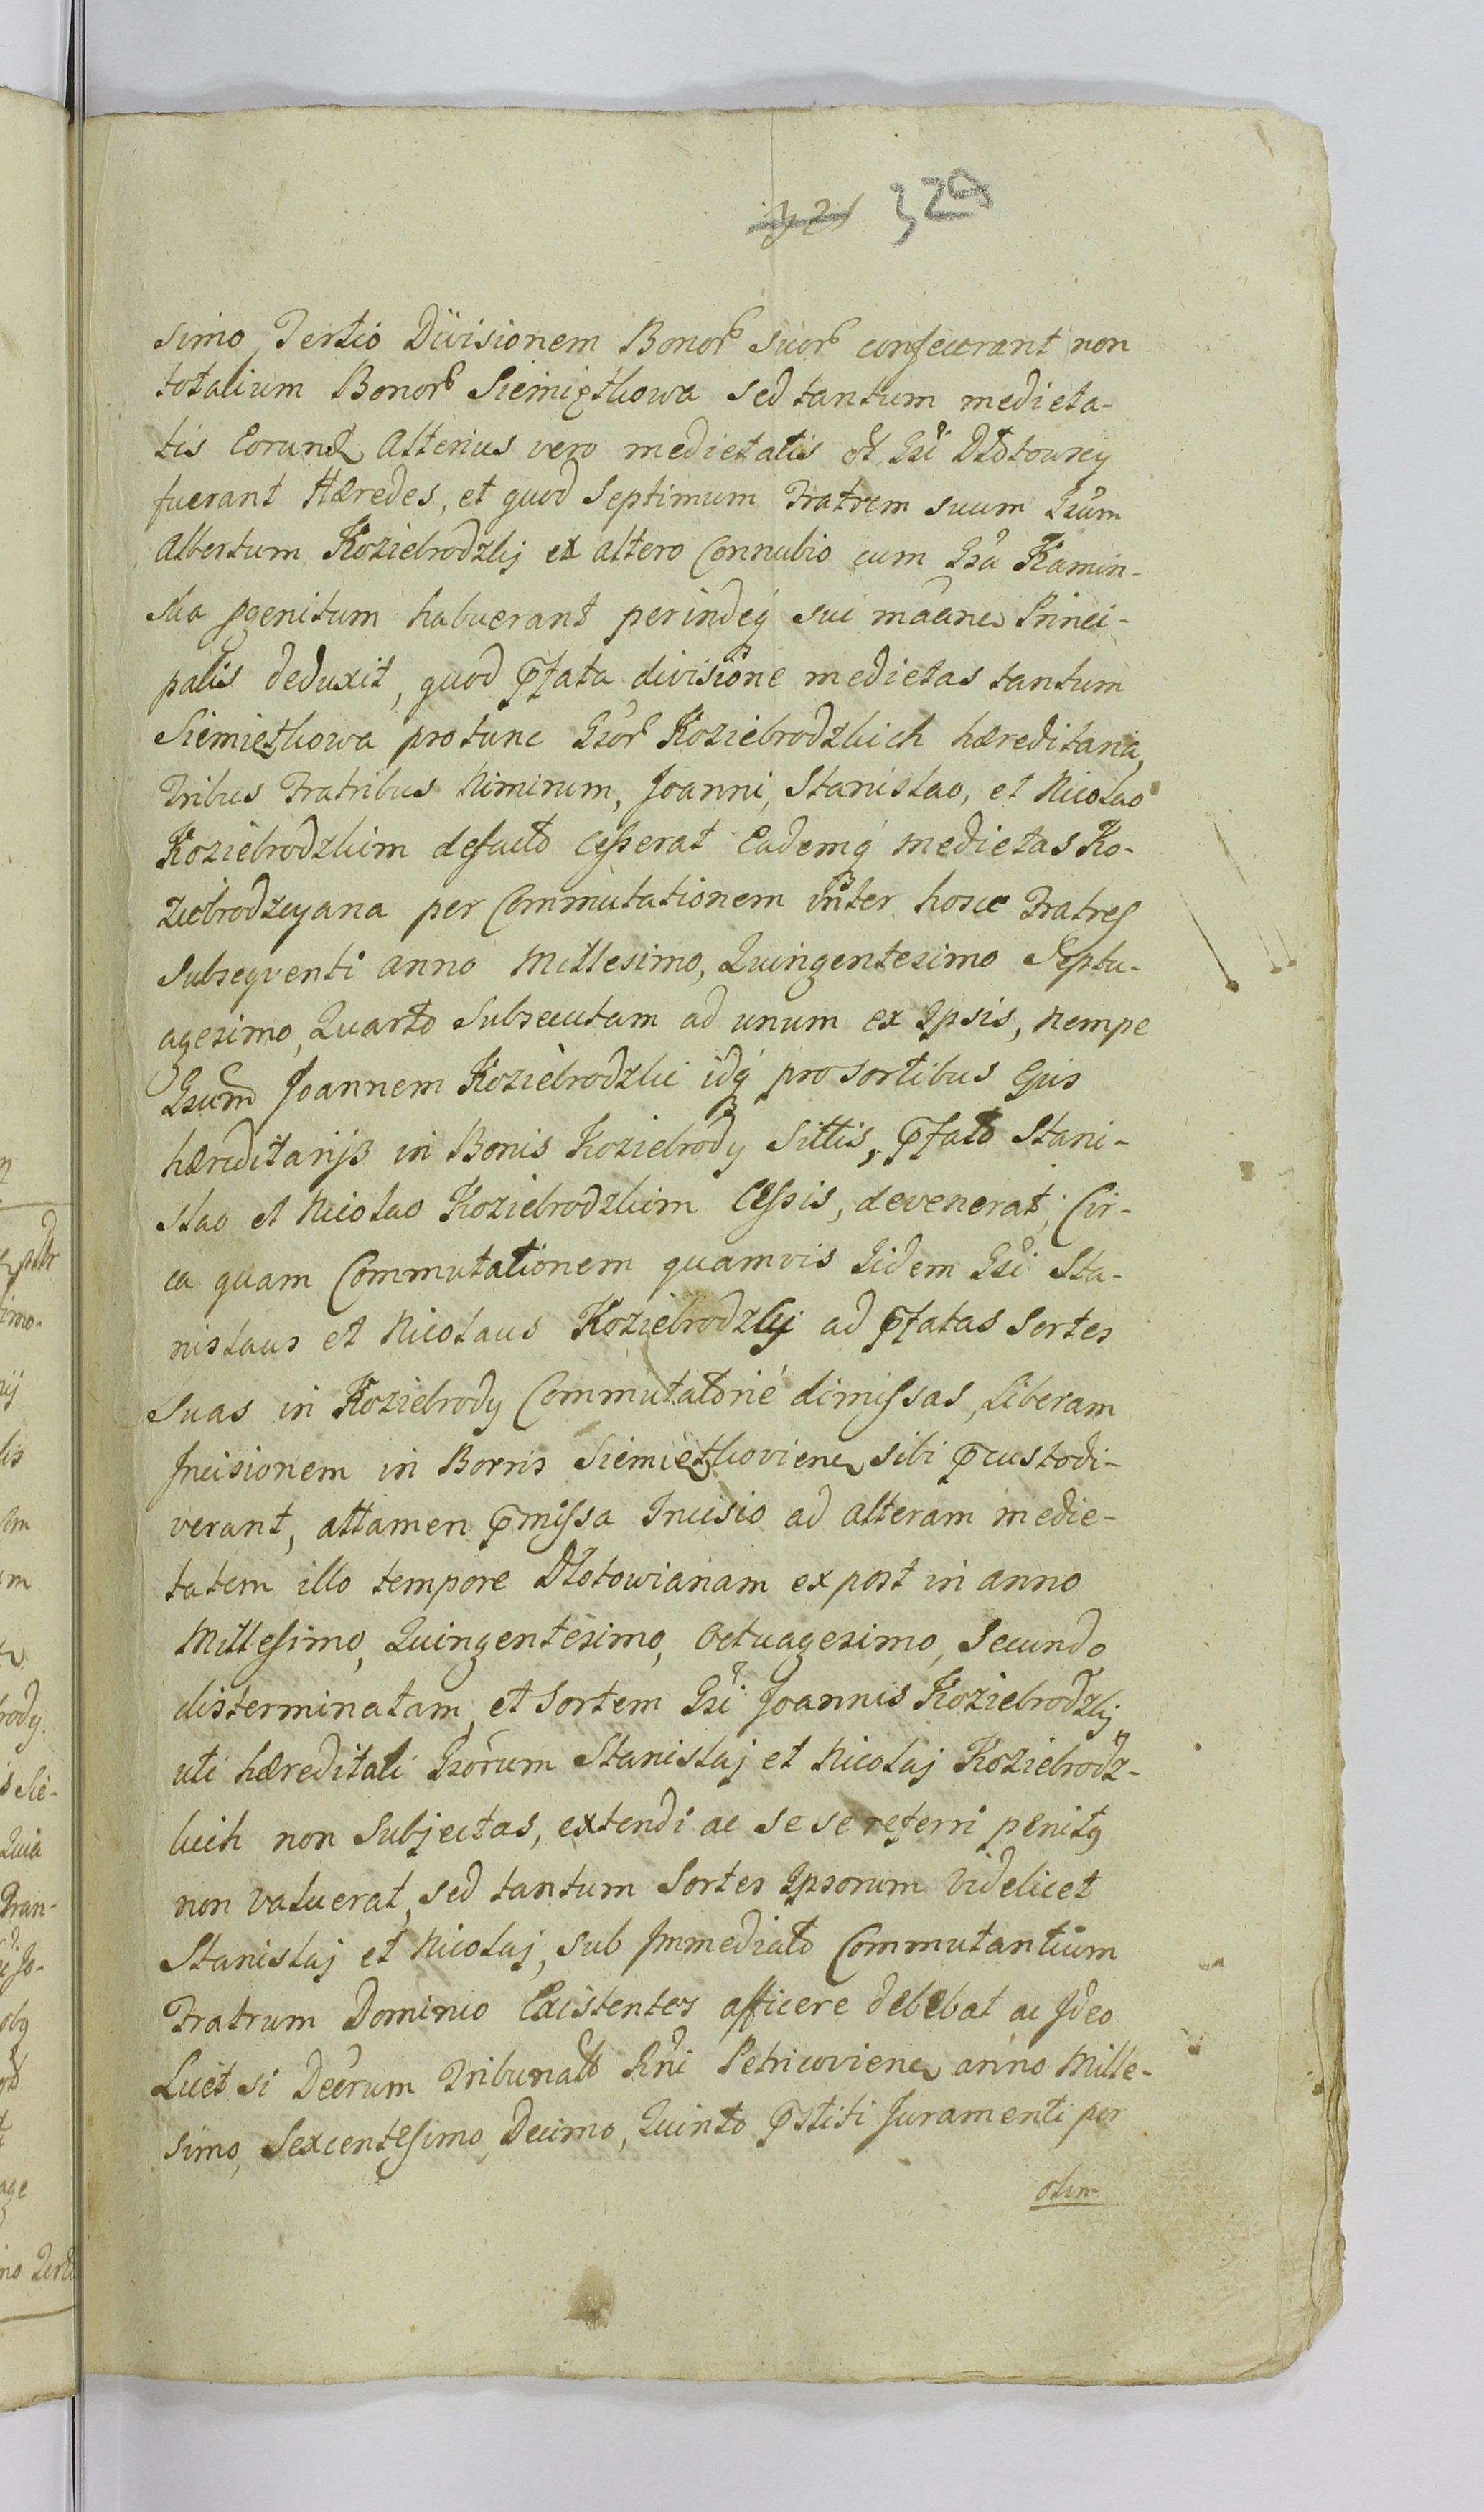 321 320
simo, Tertio Divisionem Bonor suor confecerant non
totalium Bonor Siemiętkowa sed tantum medieta-
tis Eorund Alterius vero medietatis Gsi Dłotowscy
fuerant Hæredes, et quod Septimum Fratrem suum Gsum
Albertum Koziebrodzkij ex altero Connubio cum Gsa Kamin-
ska pgenitum habuerant perindeq sui Princi-
palis deduxit, quod pfata divisione medietas tantum
Siemiętkowa protunc Gsor Koziebrodzkich hæreditaria,
Tribus Fratribus Nimirum, Joanni, Stanislao, et Nicolao
Koziebrodzkim defacto cesserat Eademq medietas Ko-
ziebrodzcyana per Commutationem inter hosce Fratres
Subseqventi anno Millesimo, Quingentesimo Septu-
agesimo, Quarto Subsecutam ad unum ex Ipsis, nempe
Gsum Joannem Koziebrodzki idq pro sortibus Ejus
hæreditarijs in Bonis Koziebrody Sittis, pfato Stani-
slao et Nicolao Koziebrodzkim Cessis, devenerat; Cir-
ca quam Commutationem quamvis Iidem Gsi Sta-
nislaus et Nicolaus Koziebrodzcy ad pfatas Sortes
Suas in Koziebrody Commutatorie dimissas, Liberam
Incisionem in Borris Siemiętkovien sibi pcustodi-
verant, attamen pmissa Incisio ad alteram medie-
tatem illo tempore Dłotowianam ex post in anno
Millesimo, Quingentesimo, Octuagesimo, Secundo
disterminatam, et Sortem Gsi Joannis Koziebrodzkij
uti hæreditati Gsorum Stanislaj et Nicolaj Koziebrodz-
kich non Subjectas, extendi ac se se referri penitq
non valuerat, sed tantum Sortes Ipsorum Videlicet
Stanislaj et Nicolaj, sub Immediato Commutantium
Fratrum Dominio Existentes afficere debebat ac Ideo
Licet si Decrum Tribunal Rni Petricovien anno Mille-
simo, Sexcentesimo, Decimo, Quinto pstiti Juramenti per
olim